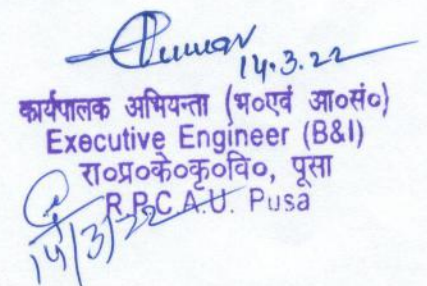 Kumar
14.3.22
कार्यपालक अभियन्ता (भ०एवं आ०सं०)
Executive Engineer (B&I)
रा०प्र०के०कृ०वि०, पूसा
R.P.C.A.U. Pusa
14/3/22